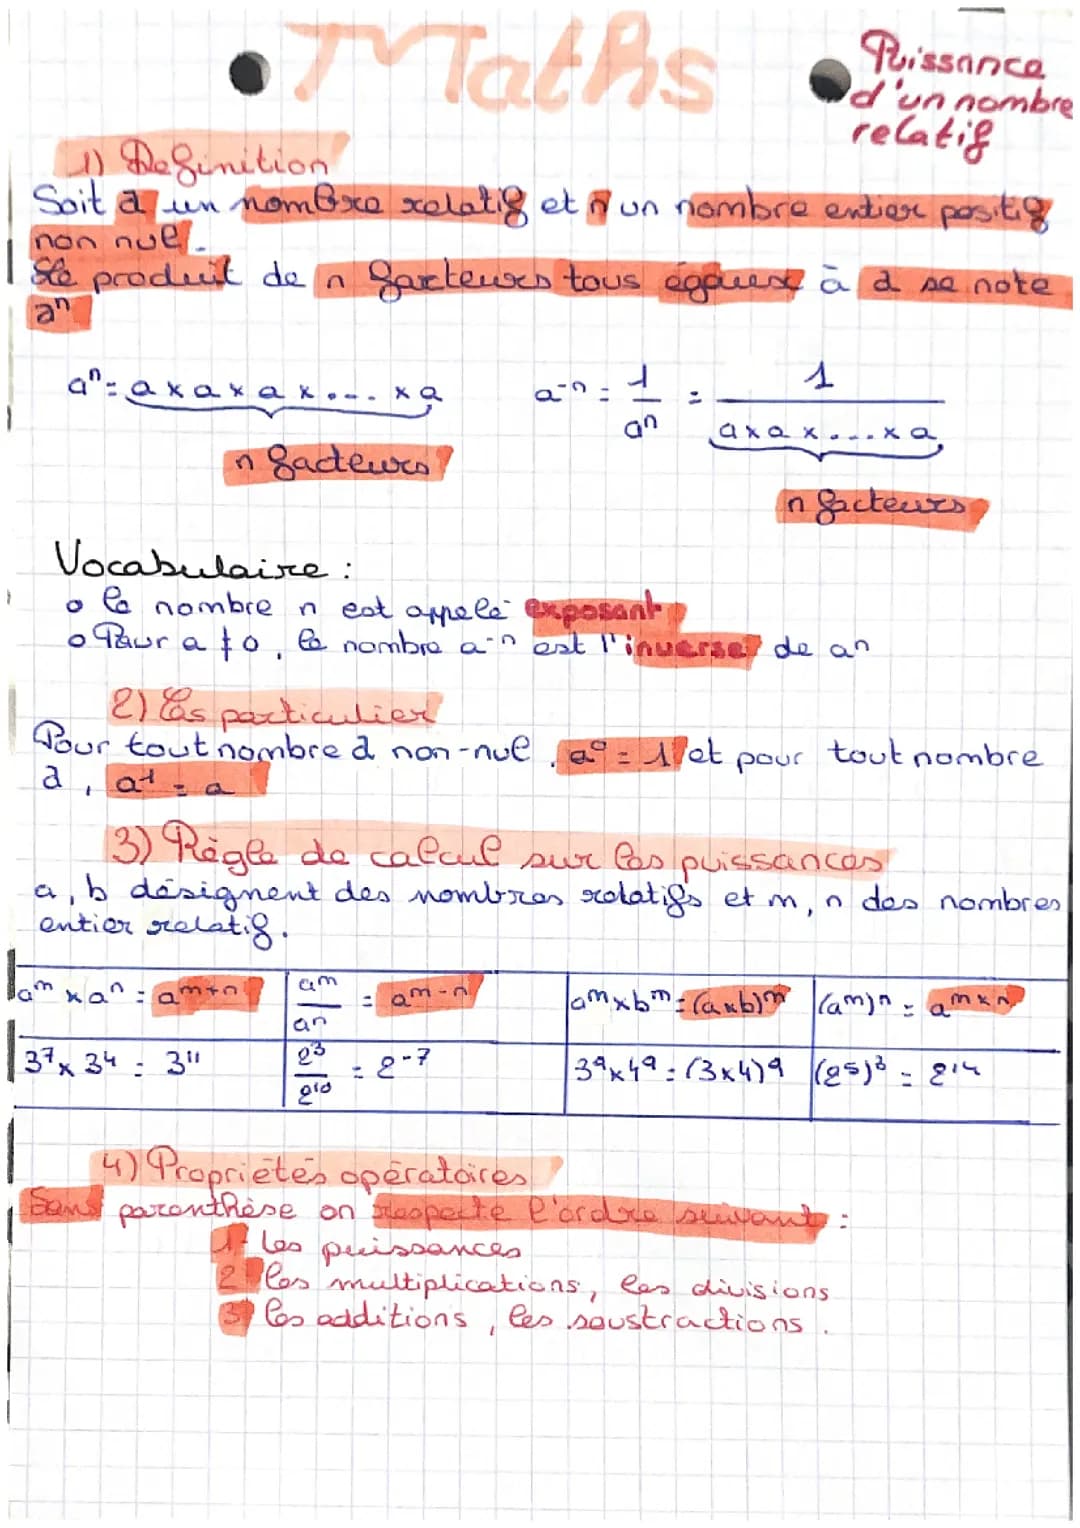 Maths
Puissance
d'un nombre
relatif
1) Définition
Soit a un nombre relatif et n un nombre entier positif
non nul.
Le produit de n facteurs tous égaux à a se note
aⁿ
aⁿ = a x a x a x ... x a
n facteurs
a⁻ⁿ = 1/aⁿ = 1/(a x a x ... x a)
n facteurs
Vocabulaire :
o le nombre n est appelé exposant
o Pour a ≠ 0, le nombre a⁻ⁿ est l'inverse de an
2) Cas particulier
Pour tout nombre a non-nul, a⁰ = 1 et pour tout nombre
a, a¹ = a
3) Règle de calcul sur les puissances
a, b désignent des nombres relatifs et m, n des nombres
entier relatif.
aᵐ x aⁿ = aᵐ⁺ⁿ aᵐ/aⁿ = aᵐ⁻ⁿ aᵐ x bᵐ = (a x b)ᵐ (aᵐ)ⁿ = aᵐˣⁿ
3⁷ x 3⁴ = 3¹¹ 2³/2¹⁰ = 2⁻⁷ 3⁹ x 4⁹ = (3 x 4)⁹ (2⁵)³ = 2¹⁴
4) Propriétés opératoires
Sans parenthèse on respecte l'ordre suivant :
1- les puissances
2 les multiplications, les divisions
3 les additions, les soustractions.